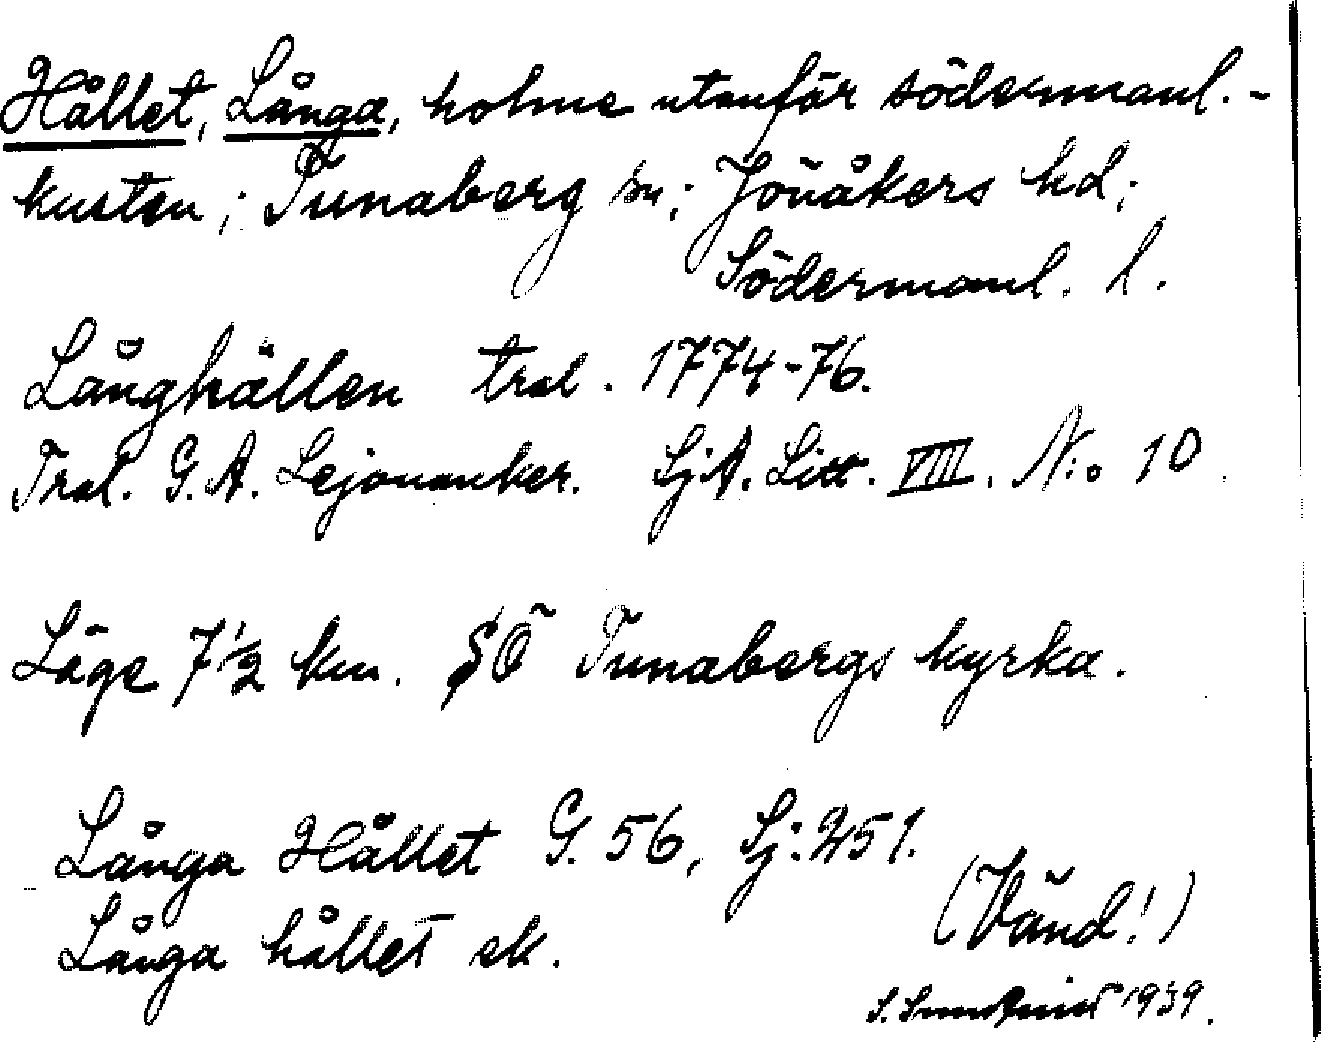 Hållet, Långa, holme utanför södermanl.-
kusten; Tunaberg sn; Jönåkers hd;
Södermanl. l.
Långhällen tral. 1774-76.
Tral. G. A. Lejonanker. Sj.A. Litt. VIII. N:o 10.
Läge 7 1/2 km. SÖ Tunabergs kyrka.
Långa Hållet G. 56, Sj: 251.
Långa hållet ek.
(Vänd!)
S. 1939.